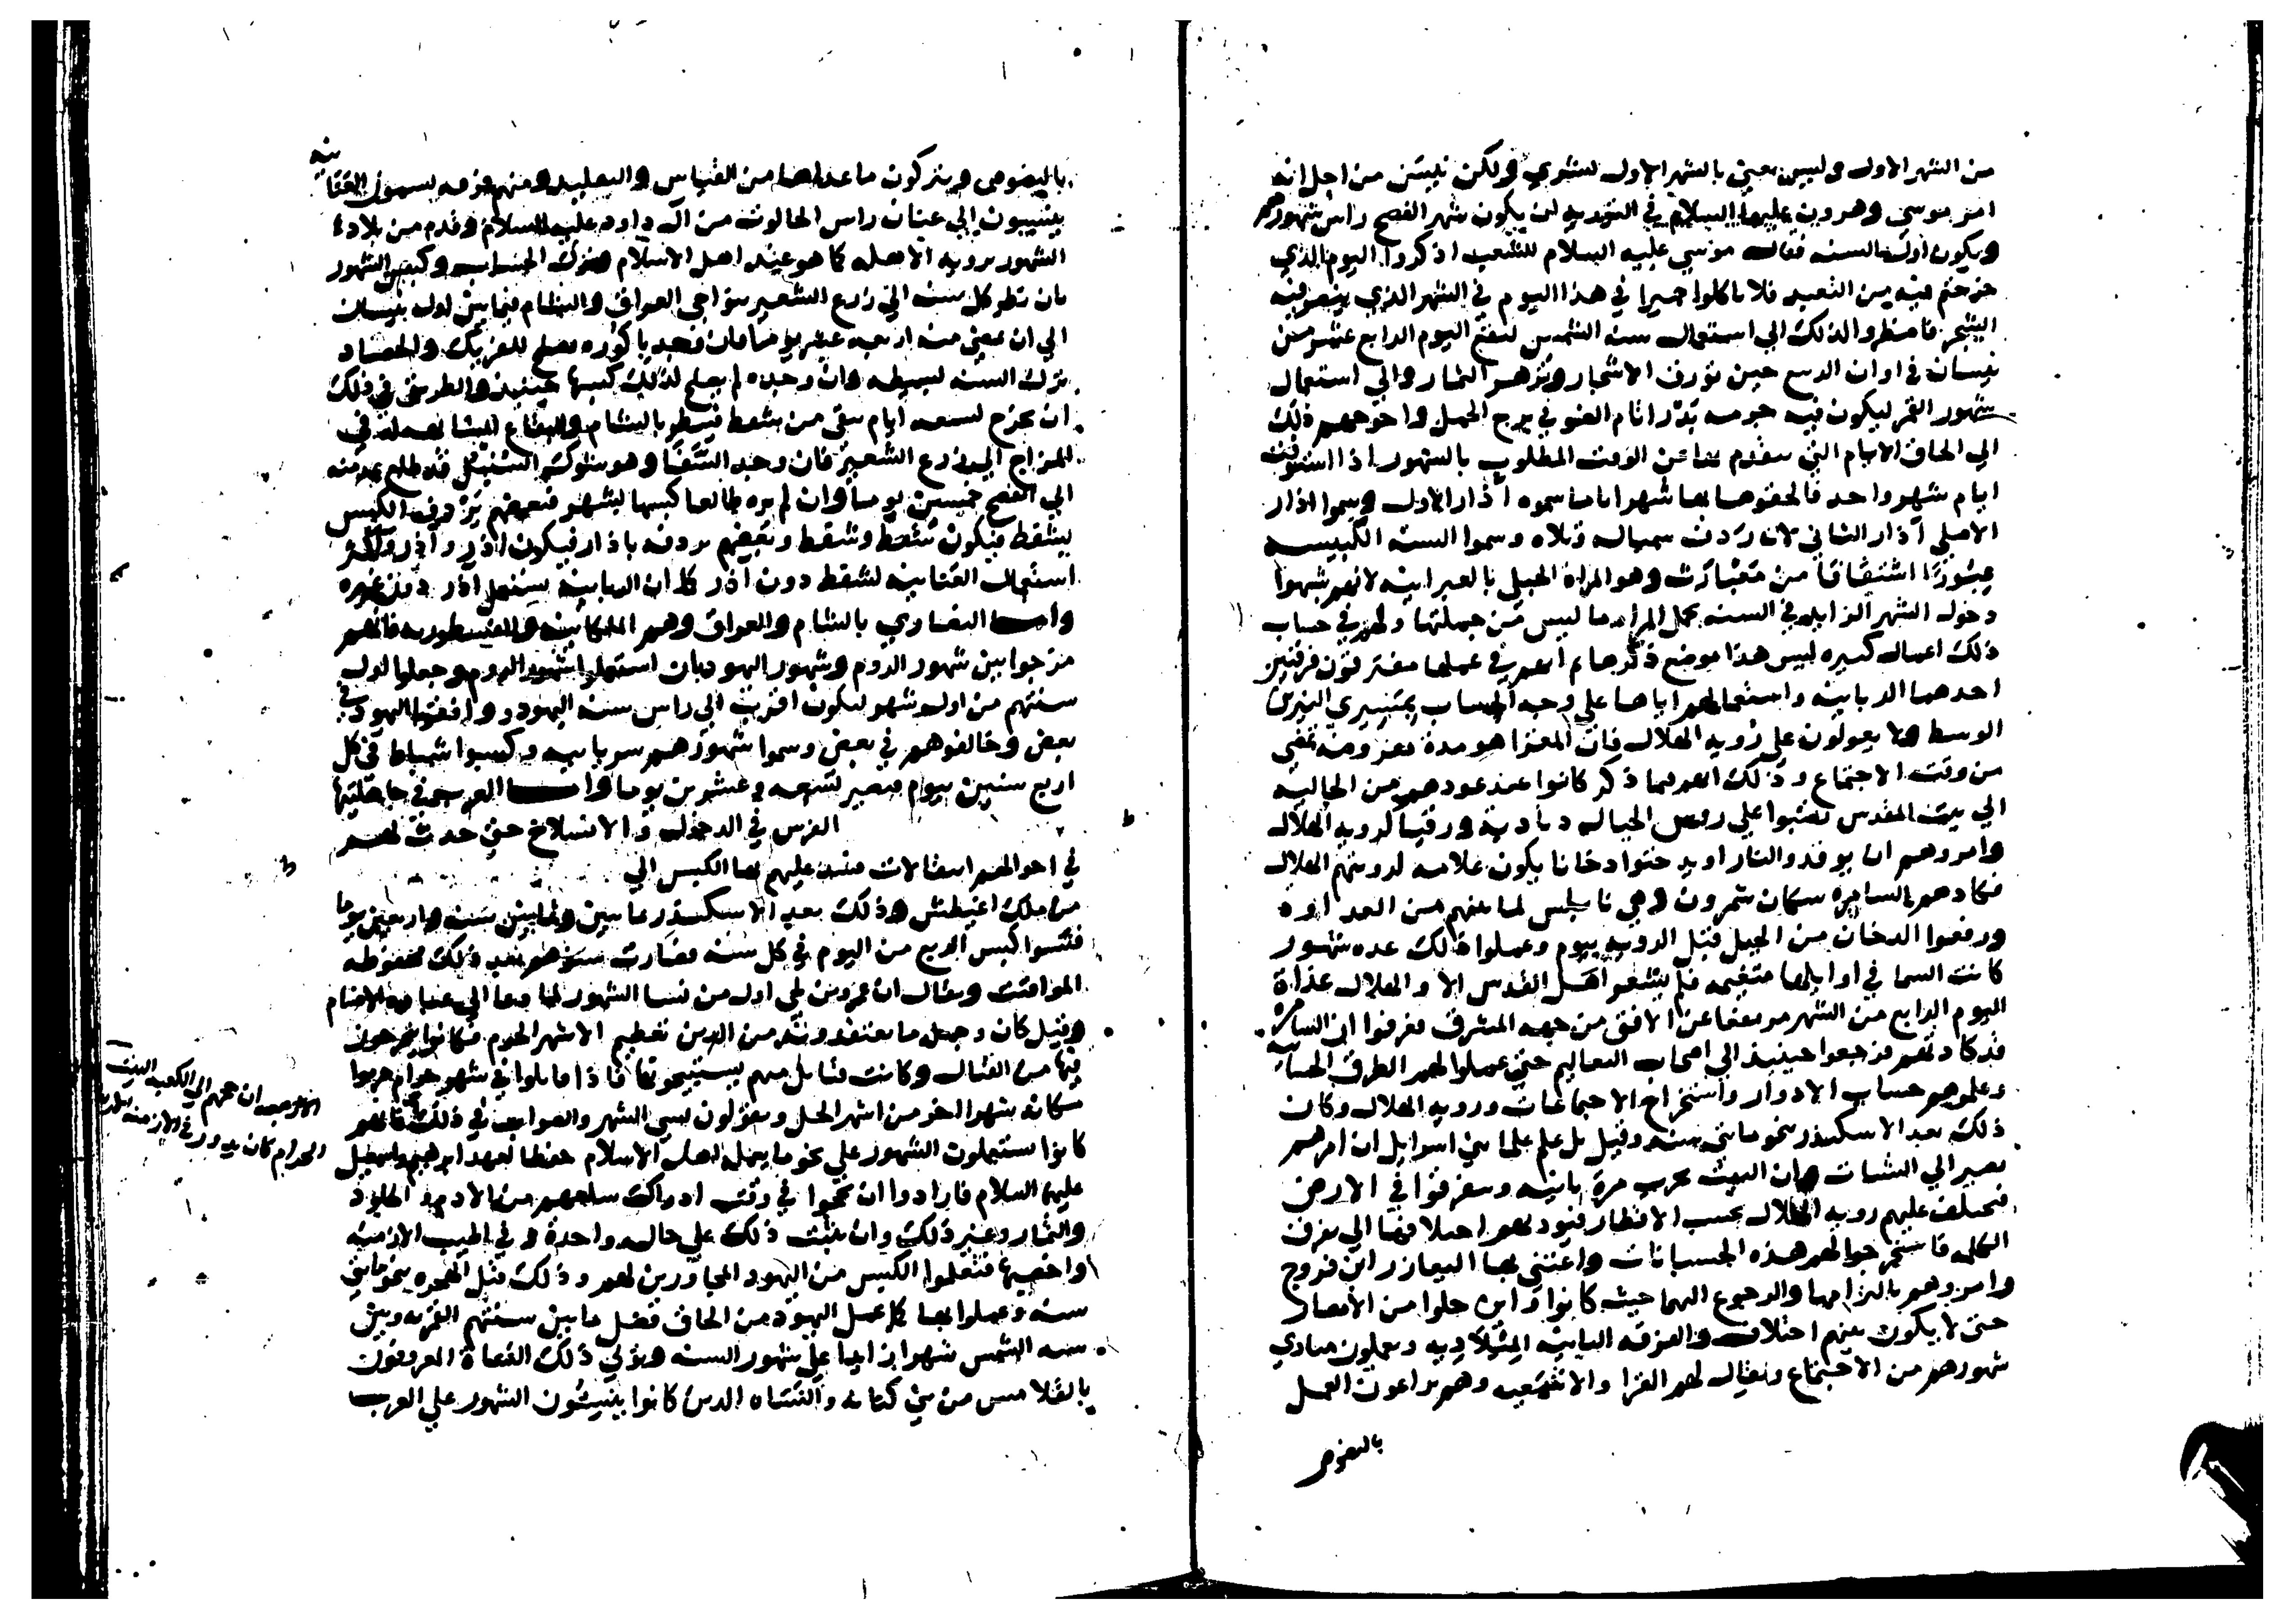 من الشهر الاول وليس يعني بالشهر الاول تشري ولكن نيسن من اجل انه
امر موسى وهرون عليهما السلام في التوريه ان يكون شهر الفصح راس شهورهم
ويكون اول السنه فقال موسي عليه السلام للشعب اذكروا اليوم الذي
خرجتم فيه من التعبد فلا تاكلوا خميرا في هذا اليوم في الشهر الذي ينضر فيه
الشجر فاضطروا لذلك الي استعمال سنة الشمس ليقع اليوم الرابع عشر من
نيسان في اوان الربيع حين تورق الاشجار وتزهر الثمار والي استعمال
شهور القمر ليكون فيه جرمه بدرا تام الضو في برج الحمل واحوجهم ذلك
الي الحاق الايام التي يتقدم بها عن الوقت المطلوب بالشهور اذا استوفت
ايام شهر واحد فالحقوها بها شهرا تاما سموه آذار الاول وسموا اذار
الاصلي آذار الثاني لانه ردف سميه له وتلاه وسموا السنه الكبيسه
عبورا اشتقاقا من معبارت وهو المراة الحبلى بالعبرانيه لانهم شبهوا
دخول الشهر الزايد في السنه بحمل المراه ما ليس من جملتها ولهم في حساب
ذلك اعمال كثيره ليس هذا موضع ذكرها ثم انهم في عملها مفترقون فرقتين
احدهما الربانيه واستعمالهم اياها علي وجه الحساب بمسيري النيرين
الوسط ولا يعولون علي رؤيه الهلال فان المغزا هو مدة مفروضه تمضي
من وقت الاجتماع وذلك انهم فيما ذكر كانوا عند عودهم من الجاليه
الي بيت المقدس نصبوا علي روس الجبال ديادبة ورقبا لرويه الهلال
وامروهم ان يوقدوا النار او يدخنوا دخانا يكون علامه لرويتهم الهلال
فكادهم السامره سكان شمرون وهي نابلس لما بينهم من العداوه
ورفعوا الدخان من الجبل قبل الرويه بيوم وعملوا ذلك عده شهور
كانت السما في اوايلها متغيمه فلم يشعر اهل القدس الا والهلال غداة
اليوم الرابع من الشهر مرتفعا عن الافق من جهه المشرق فعرفوا ان السامره
قد كادتهم فرجعوا حينيذ الي اصحاب التعاليم حتي عملوا لهم الطرق الحسابيه
وعلموهم حساب الادوار واستخراج الاجتماعات ورويه الهلال وكان
ذلك بعد الاسكندر بنحو مايتي سنه وقيل بل علم علما بني اسرايل ان امرهم
يصير الي الشتات وان البيت يخرب مرة ثانيه ويتفرقوا في الارض
فيختلف عليهم رويه الهلال بحسب الاقطار فيودهم اختلافها الي تفرق
الكلمه فاستخرجوا لهم هذه الحسبانات واعتني بها اليعازر ابن فروح
وامروهم بالتزامها والرجوع اليها حيث كانوا واين حلوا من الامصار
حتى لا يكون بينهم اختلاف والفرقه الثانيه الميلاديه ويعملون مبادي
شهورهم من الاجتماع ويقال لهم القرا والاشمعيه وهم يراعون العمل
بالنصوص
بالنصوص ويتركون ما عداها من القياس والتقليد ومنهم فرقه يسمون العنانيه
ينسبون الي عنان راس الجالوت من آل داود عليه السلام وقدم من بلاده
الشهور برويه الاهله كما هو عند اهل الاسلام وترك الحساب وكبس الشهور
بان نظر كل سنه الي زرع الشعير بنواحي العراق والشام فيما بين اول نيسان
الي ان يمضي منه اربعه عشر يوما فان وجد باكوره تصلح للفريك والحصاد
ترك السنه بسيطه وان وجده لم يصلح لذلك كبسها حينيذ والطريق في ذلك
ان يخرج لسبعه ايام تبقي من شفط فينظر بالشام والبقاع المشابهه له في
المزاج الي زرع الشعير فان وجد السفا وهو شوك السنبل قد طلع عد منه
الي الفصح خمسين يوما وان لم يره طالعا كبسها بشهر فبعضهم يردف الكبس
بشفط فيكون شفط وشفط وبعضهم يردفه باذار فيكون اذر واذر واكثر
استعمال العنانيه لشفط دون اذر كما ان الربانيه يستعمل اذر دون غيره
واما النصاري بالشام والعراق وهم الملكانيه والنسطوريه فانهم
مزجوا بين شهور الروم وشهور اليهود بان استعملوا شهور الروم وجعلوا اول
سنتهم من اول شهر ليكون اقرب الي راس سنة اليهود ووافقوا اليهود في
بعض وخالفوهم في بعض وسموا شهورهم سريانيه وكبسوا شباط في كل
اربع سنين بيوم فيصير تسعه وعشرين يوما واما العرب في جاهليتها
الفرس في الدخول والانسلاخ حتي حدث لهم
في احوالهم انتقالات فسد عليهم بها الكبس الي
من ملك اغسطس وذلك بعد الاسكندر بمايتين وثمانين سنة واربعين يوما
فكبسوا كبس الربع من اليوم في كل سنة فصارت سنوهم بعد ذلك محفوظه
المواقيت ويقال ان عمرو بن لحي اول من نسا الشهور لما دعا الي عباده الاصنام
وقيل كان وجعل ما يعتقدونه من الدين تعظيم الاشهر الحرم فكانوا يتحرجون
فيها من القتال وكانت قبايل منهم يستبيحونها فاذا قاتلوا في شهر حرام حرموا
مكانه شهرا اخر من اشهر الحل ويقولون نسي الشهر والصواب في ذلك انهم
كانوا يستعملون الشهور علي نحو ما يعمله اهل الاسلام حفظا لعهد ابرهيم واسمعيل
عليهما السلام فارادوا ان يحجوا في وقت ادراك سلعهم من الادم والجلود
والثمار وغير ذلك وان يثبت ذلك علي حاله واحدة وفي اطيب الازمنه
واخصبها فتعلموا الكبس من اليهود المجاورين لهم وذلك قبل الهجره بنحو مايتي
سنه وعملوا بها كما عمل اليهود من الحاق فضل ما بين سنتهم القمريه وبين
سنه الشمس شهرا زايدا علي شهور السنه ويولي ذلك القضاة المعروفون
بالقلامس من بني كنانه والنساه الذين كانوا ينسئون الشهور علي العرب
ان حجهم الي الكعبه البيت
الحرام كان يدور في الازمنه